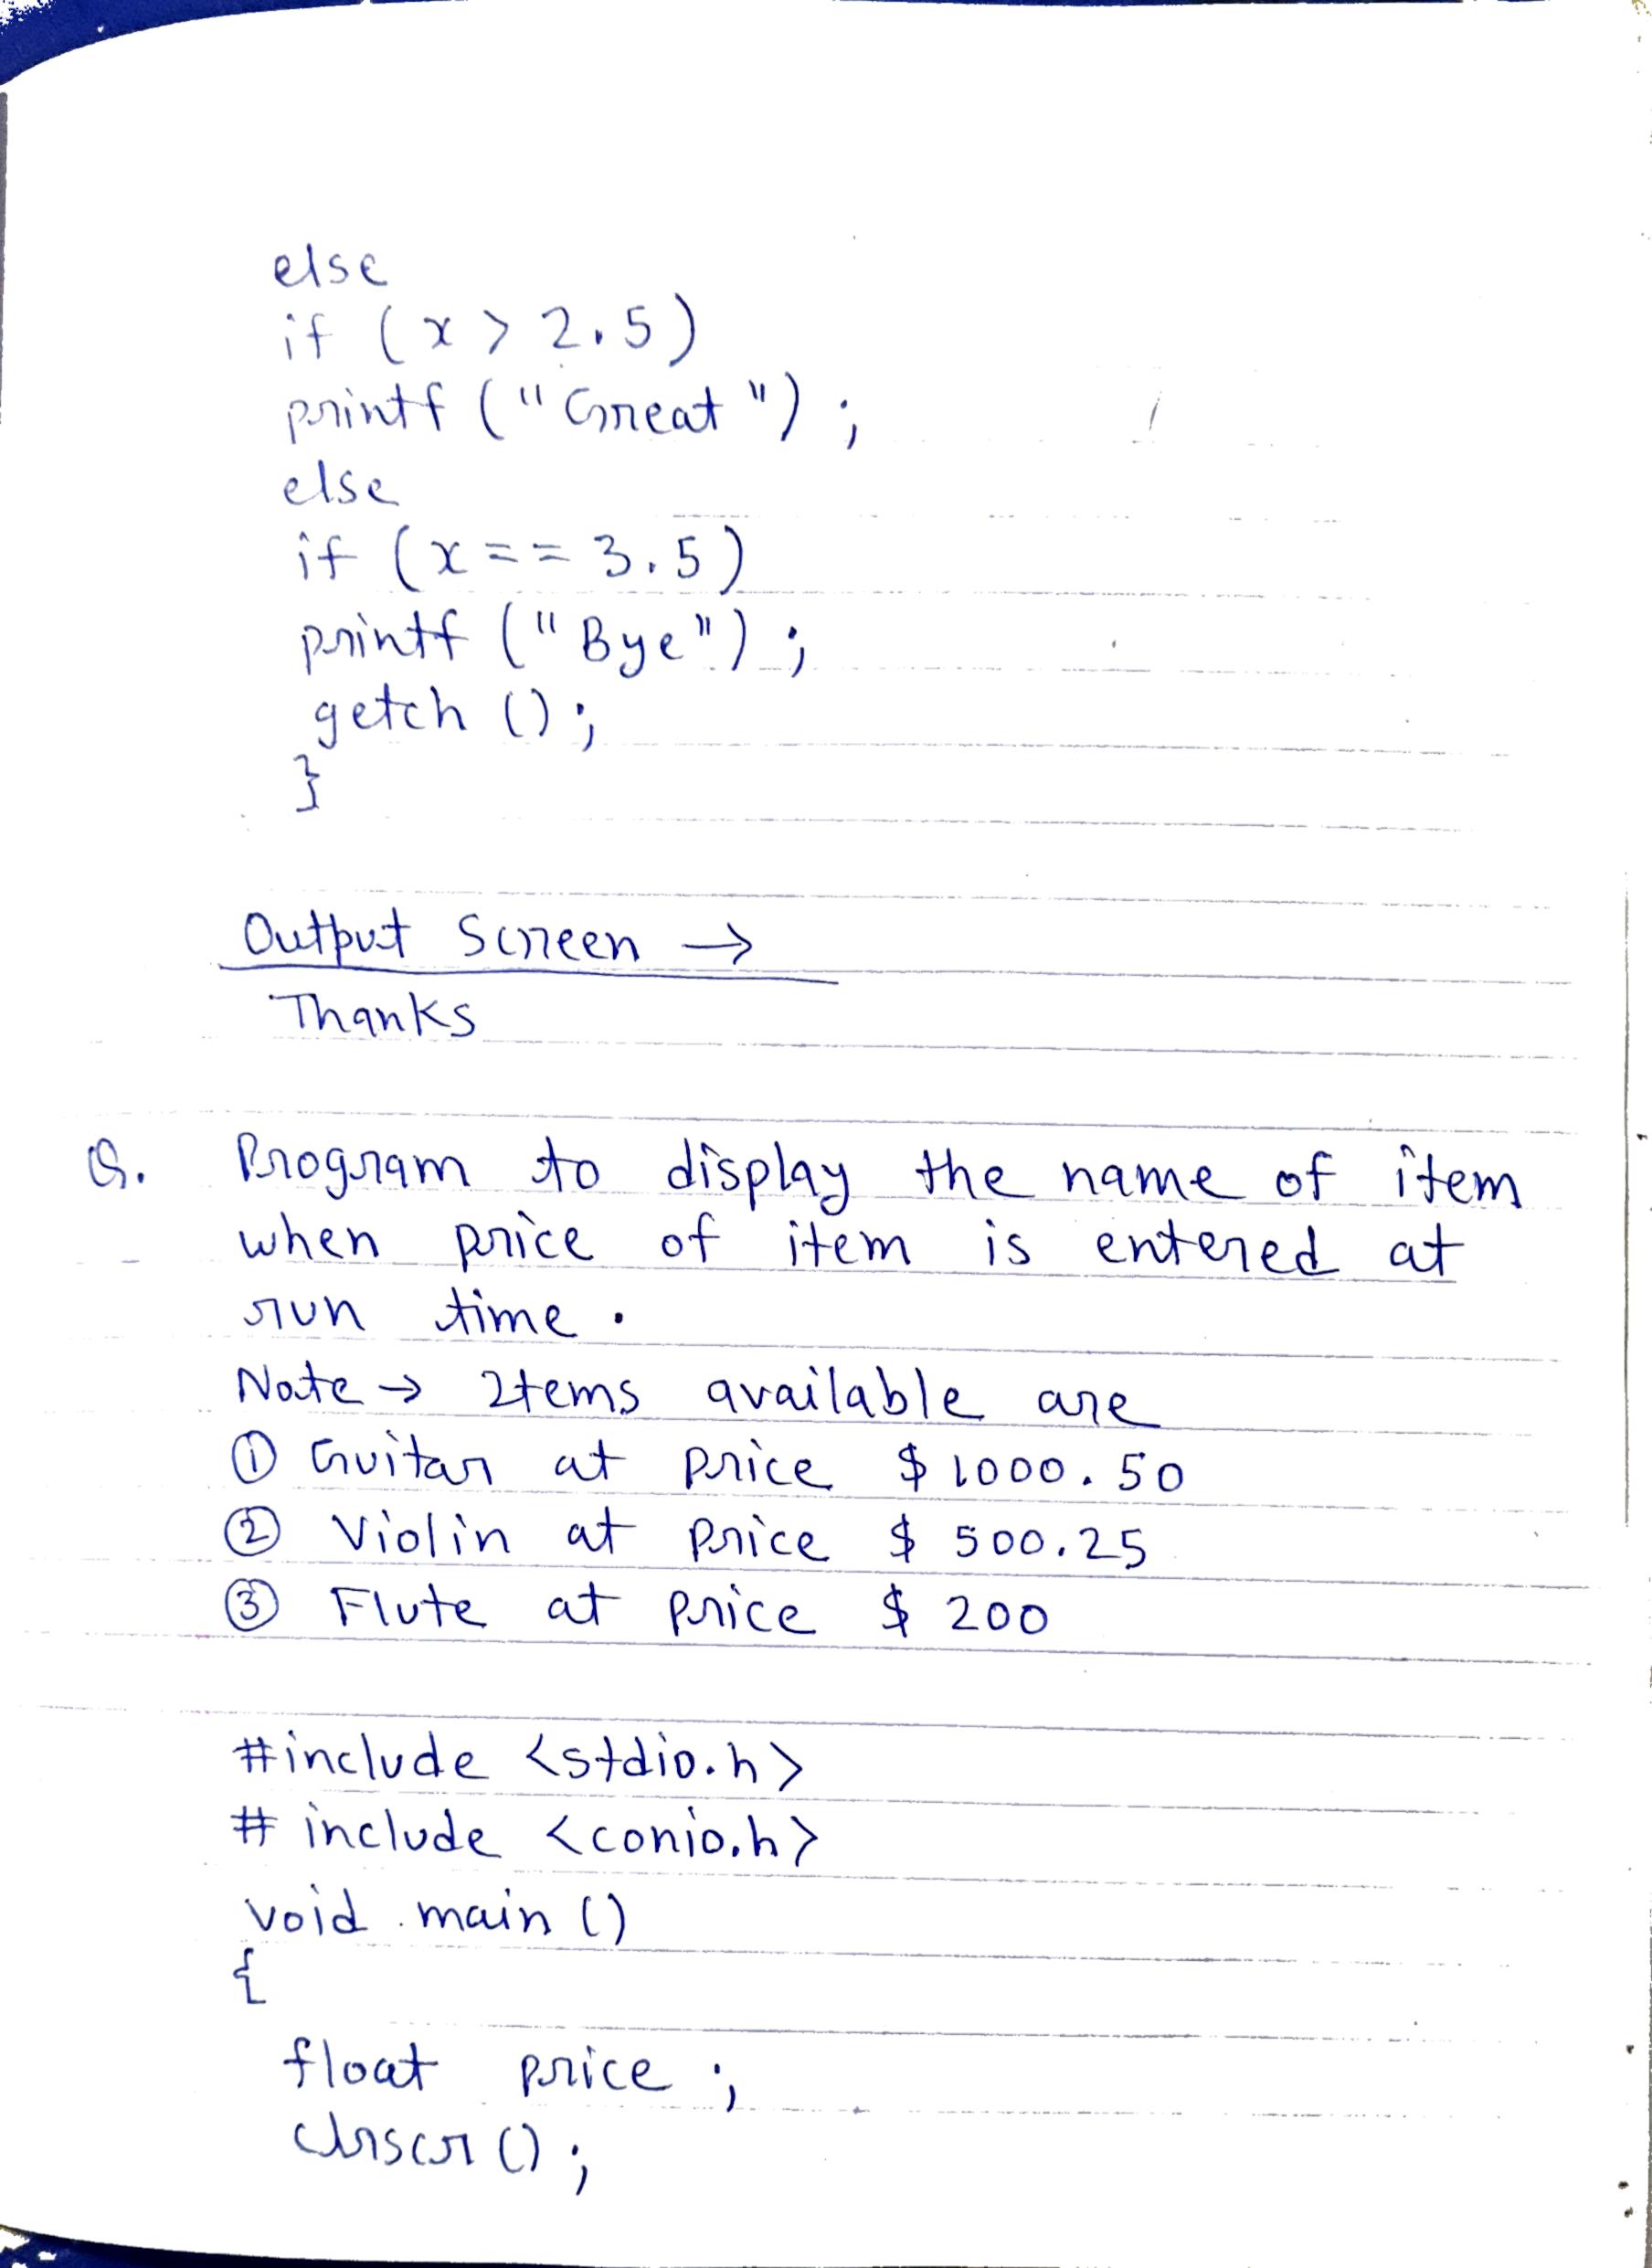 else
if (x > 2.5)
printf ("Great") ;
else
if (x == 3.5)
printf ("Bye") ;
getch () ;
}
Output Screen →
Thanks
Q. Program to display the name of item
when price of item is entered at
run time .
Note → Items available are
① Guitar at price $ 1000.50
② Violin at price $ 500.25
③ Flute at price $ 200
#include <stdio.h>
# include <conio.h>
void main ()
{
float price ;
clrscr () ;